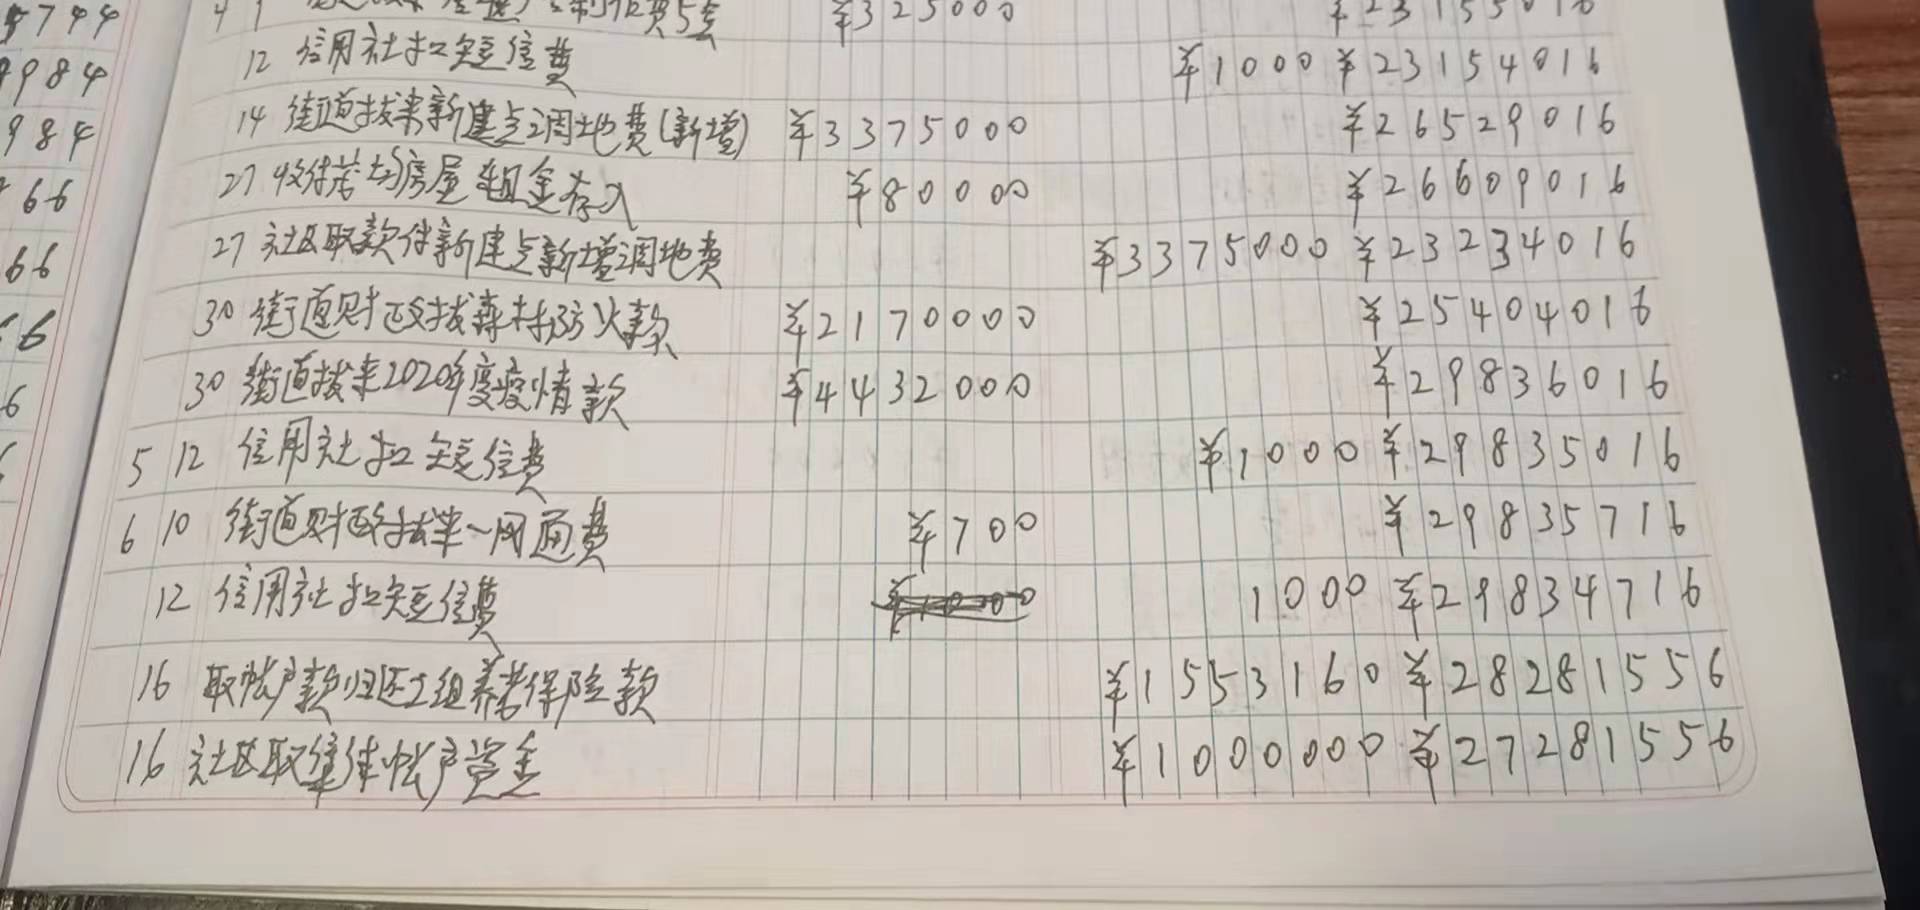 5744
4 1 费5套 ¥325000 ¥23155016
984 12 信用社扣短信费 ¥1000 ¥23154016
984 14 街道拨来新建点调地费(新增) ¥3375000 ¥26529016
66 27 收 房屋租金存入 ¥80000 ¥26609016
66 27 社区取款付新建点新增调地费 ¥3375000 ¥23234016
6 30 街道财政拨森林防火款 ¥2170000 ¥25404016
6 30 街道拨来2020年度疫情款 ¥4432000 ¥29836016
5 12 信用社扣短信费 ¥1000 ¥29835016
6 10 街道财政拨来一网通费 ¥700 ¥29835716
12 信用社扣短信费 1000 ¥29834716
16 取帐户款归还2组养老保险款 ¥1553160 ¥28281556
16 社区取集体帐户资金 ¥1000000 ¥27281556